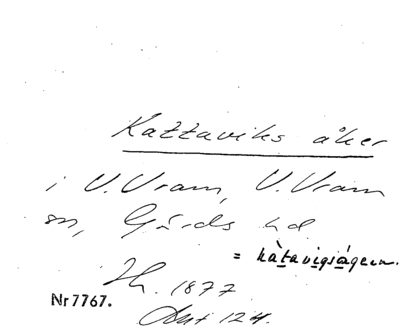 Kattaviks åker
i V. Vram, V. Vram
sn, Gärds hd
= kàtavigságeʀn.
Th. 1877
Nr 7767.
Ant 124.